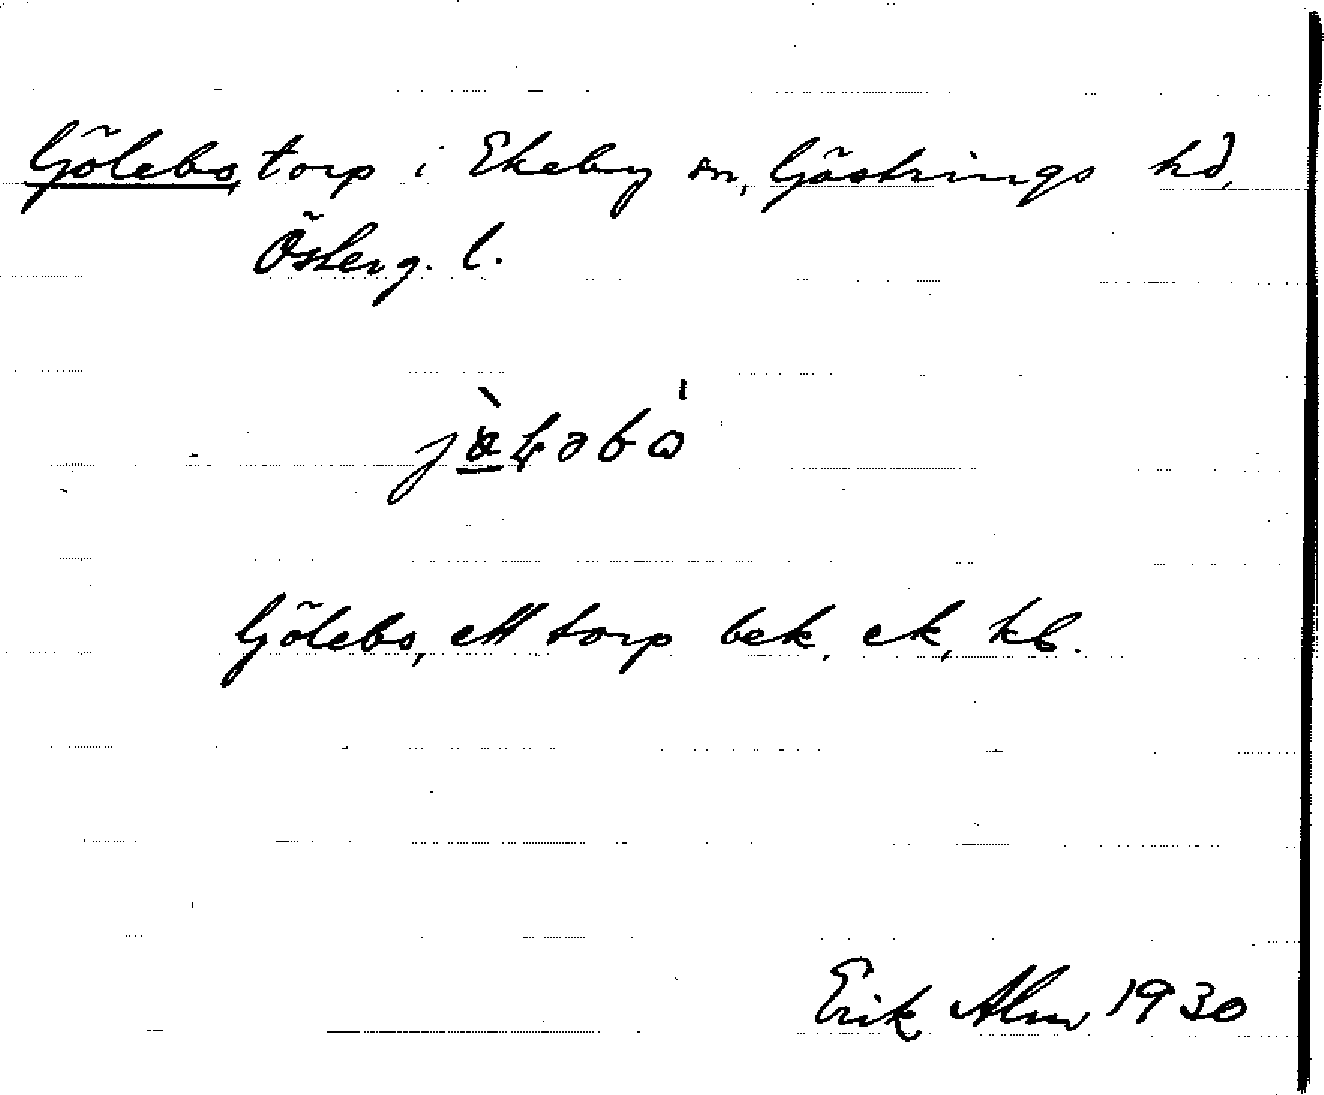 Gölebo, torp i Ekeby sn, Göstrings hd,
Österg. l.
Gölebo, ett torp bek. ek, kb.
Erik Alm 1930